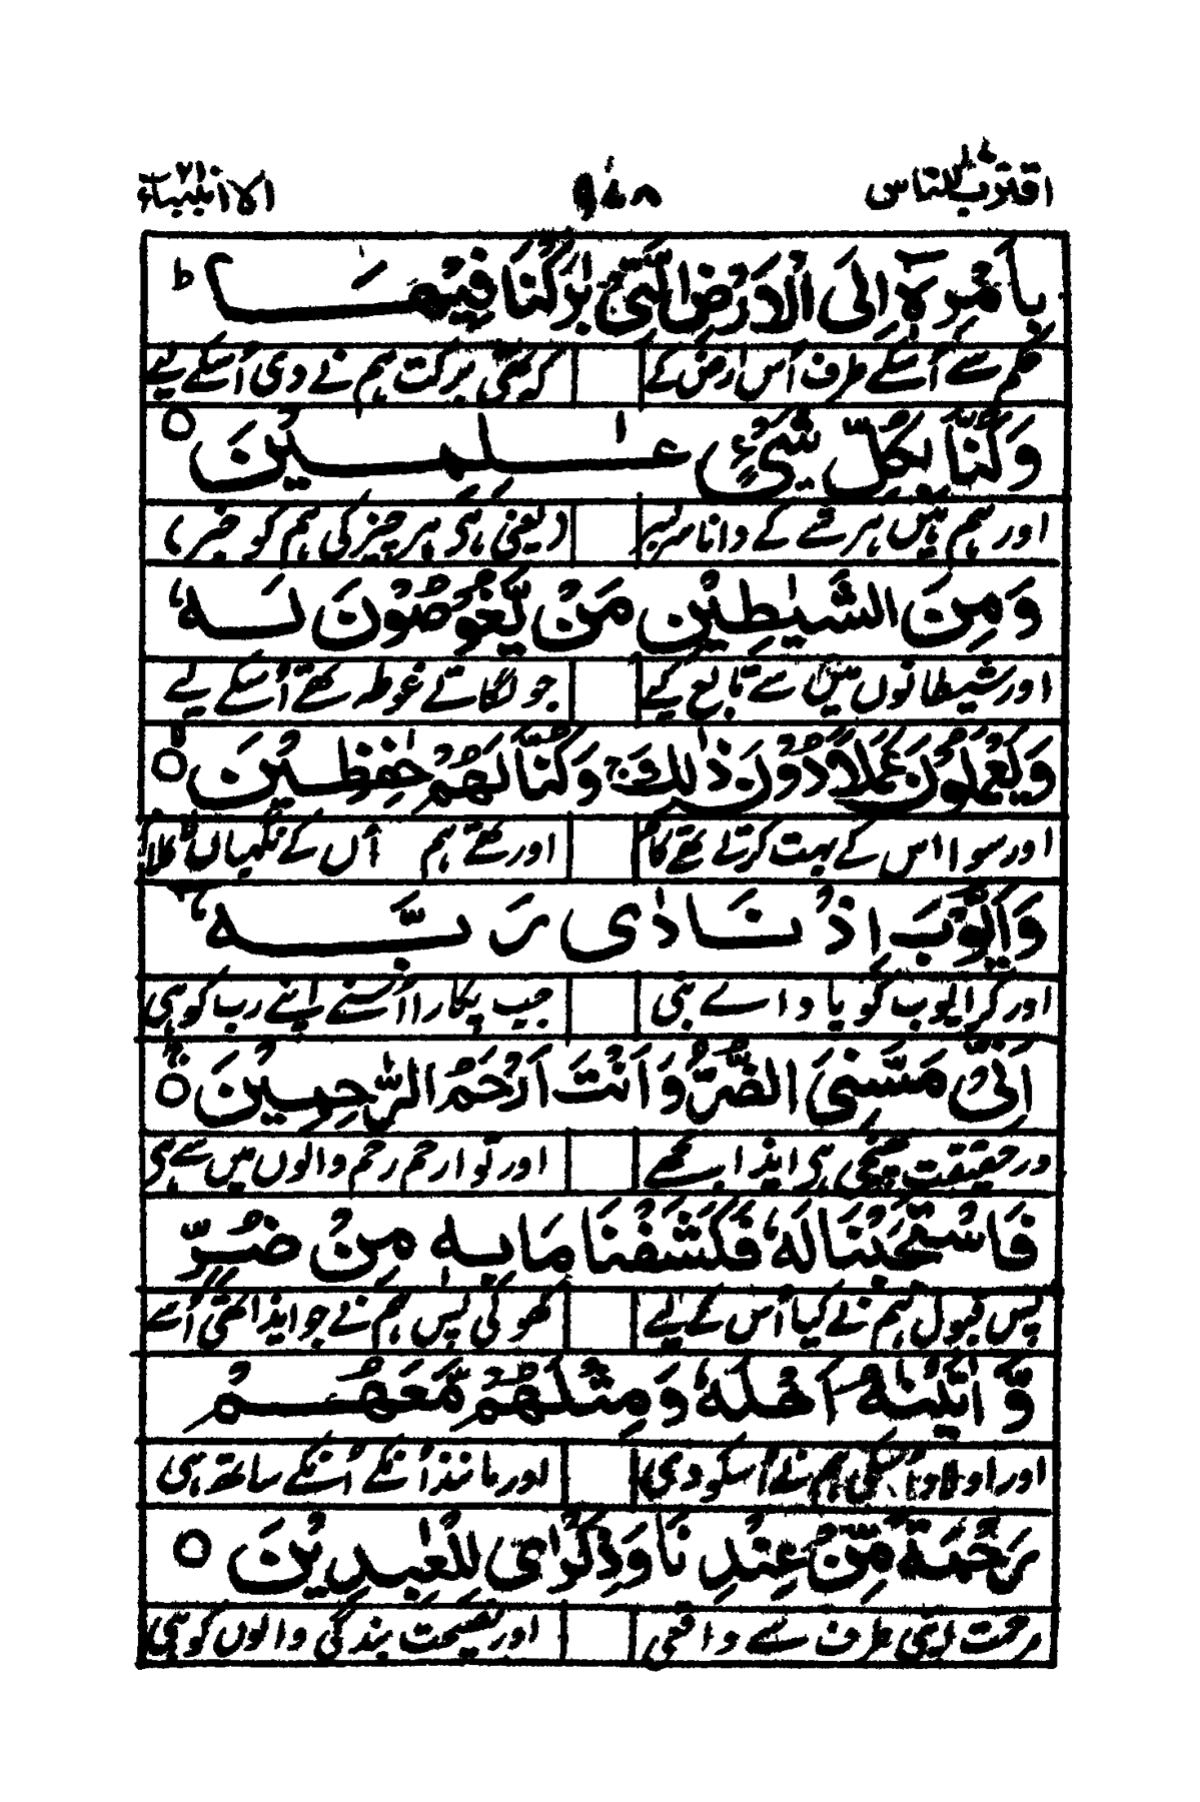 اقترب للناس ۹۴۸ الانبیاء ۲۱
بِاَمْرِهٖٓ اِلَى الْاَرْضِ الَّتِیْ بٰرَكْنَا فِیْهَا ط
حکم سے اُسکے طرف اُس ارض کے کہ تھی برکت ہم نے دی اُسکے لیے
وَكُنَّا بِكُلِّ شَیْءٍ عٰلِمِیْنَ ○
اور ہم ہیں ہر شے کے دانا سربسر (یعنی ہی ہر چیز کی ہم کو خبر)
وَمِنَ الشَّیٰطِیْنِ مَنْ یَّغُوْصُوْنَ لَهٗ
اور شیطانوں میں سے تابع کیے جو لگاتے غوطہ تھے اُسکے لیے
وَیَعْمَلُوْنَ عَمَلًا دُوْنَ ذٰلِكَ ج وَكُنَّا لَهُمْ حٰفِظِیْنَ ○
اور سوا اس کے بہت کرتے تھے کام اور تھے ہم اُں کے نگہباں
وَاَیُّوْبَ اِذْ نَادٰی رَبَّهٗٓ
اور کر ایوب کو یاد اے نبی جب پکارا اُسنے اپنے رب کو ہی
اَنِّیْ مَسَّنِیَ الضُّرُّ وَاَنْتَ اَرْحَمُ الرّٰحِمِیْنَ ○
درحقیقت پہنچی ہی ایذا مجھے اور تو ارحم رحم والوں میں سے ہی
فَاسْتَجَبْنَا لَهٗ فَكَشَفْنَا مَا بِهٖ مِنْ ضُرٍّ
پس قبول ہم نے کیا اُس کے لیے کھو کی پس ہم نے جو ایذا تھی اُسے
وَّاٰتَیْنٰهُ اَهْلَهٗ وَمِثْلَهُمْ مَّعَهُمْ
اور اولاد اُسکی ہم نے اُسکو دی اور مانند اُنکے اُنکے ساتھ ہی
رَحْمَةً مِّنْ عِنْدِنَا وَذِكْرٰی لِلْعٰبِدِیْنَ ○
رحمت اپنی طرف سے واقعی اور نصیحت بندگی والوں کو ہی